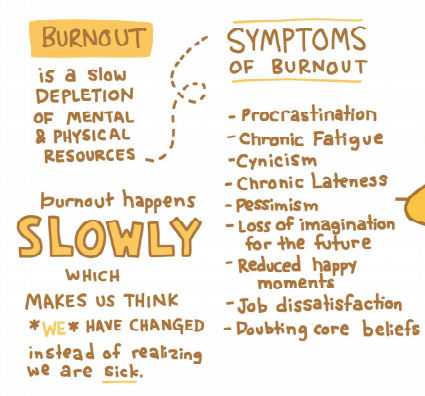 BURNOUT
is a slow
DEPLETION
OF MENTAL
& PHYSICAL
RESOURCES
burnout happens
SLOWLY
WHICH
MAKES US THINK
*WE* HAVE CHANGED
instead of realizing
we are sick.
SYMPTOMS
OF BURNOUT
- Procrastination
- Chronic Fatigue
- Cynicism
- Chronic Lateness
- Pessimism
- Loss of imagination
for the future
- Reduced happy
moments
- Job dissatisfaction
- Doubting core beliefs